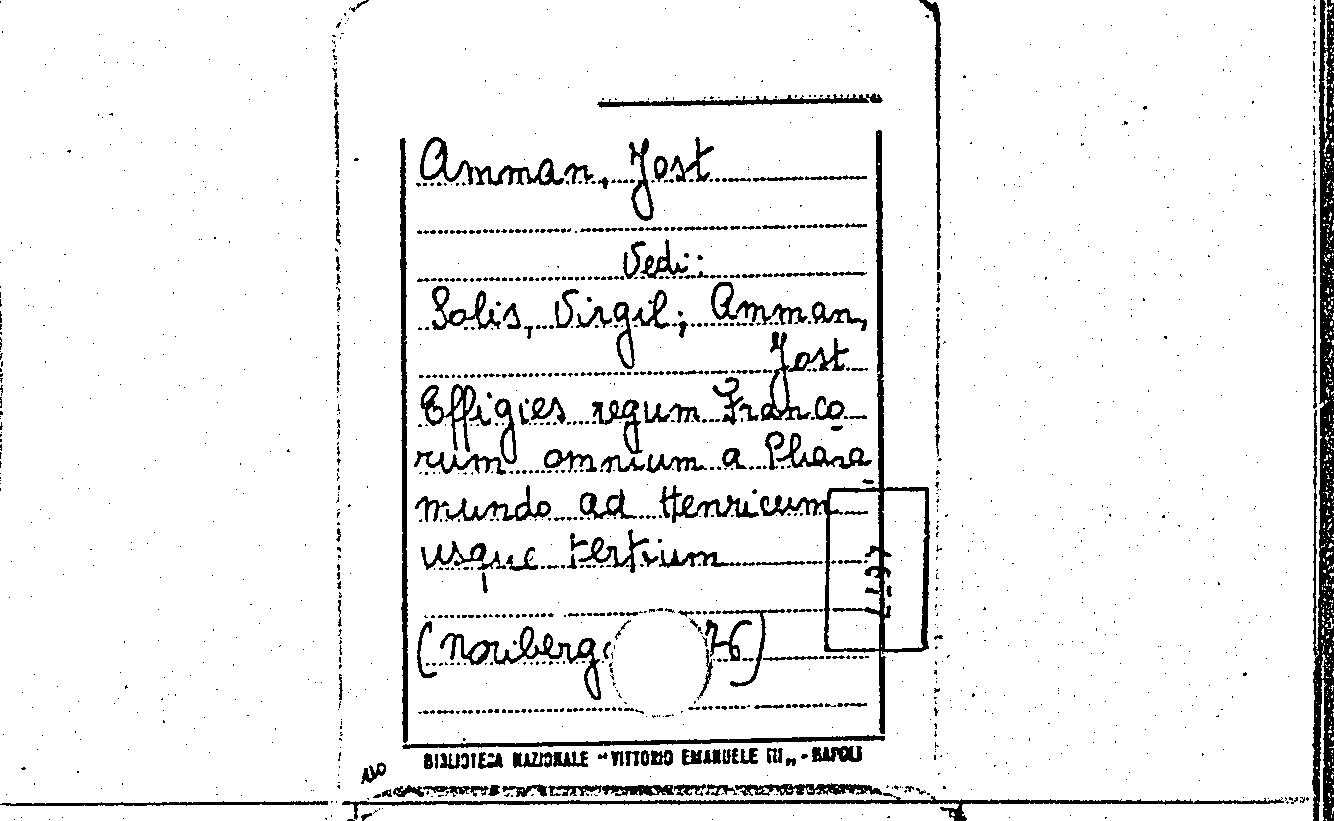 Amman, Jost
Vedi:
Solis, Virgil; Amman,
Jost
Effigies regum Franco
rum omnium a Phara
mundo ad Henricum
usque tertium
(Noriberg 76)
BIBLIOTECA NAZIONALE "VITTORIO EMANUELE III„ - NAPOLI